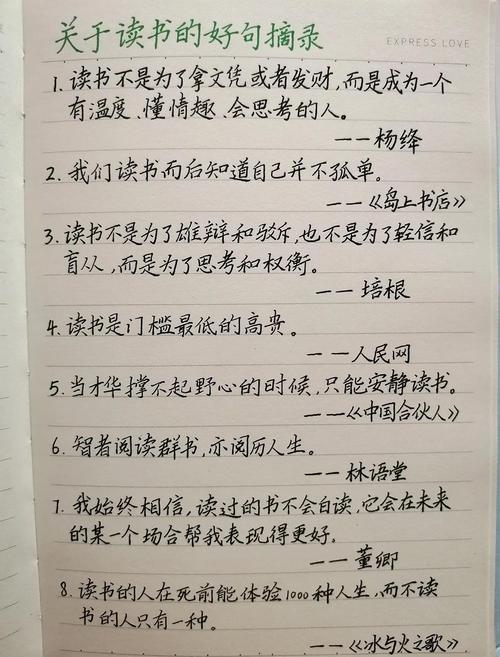 关于读书的好句摘录
EXPRESS LOVE
1. 读书不是为了拿文凭或者发财，而是成为一个
有温度、懂情趣、会思考的人。
——杨绛
2. 我们读书而后知道自己并不孤单。
——《岛上书店》
3. 读书不是为了雄辩和驳斥，也不是为了轻信和
盲从，而是为了思考和权衡。
——培根
4. 读书是门槛最低的高贵。
——人民网
5. 当才华撑不起野心的时候，只能安静读书。
——《中国合伙人》
6. 智者阅读群书，亦阅历人生。
——林语堂
7. 我始终相信，读过的书不会自读，它会在未来
的某一个场合帮我表现得更好。
——董卿
8. 读书的人在死前能体验1000种人生，而不读
书的人只有一种。
——《冰与火之歌》